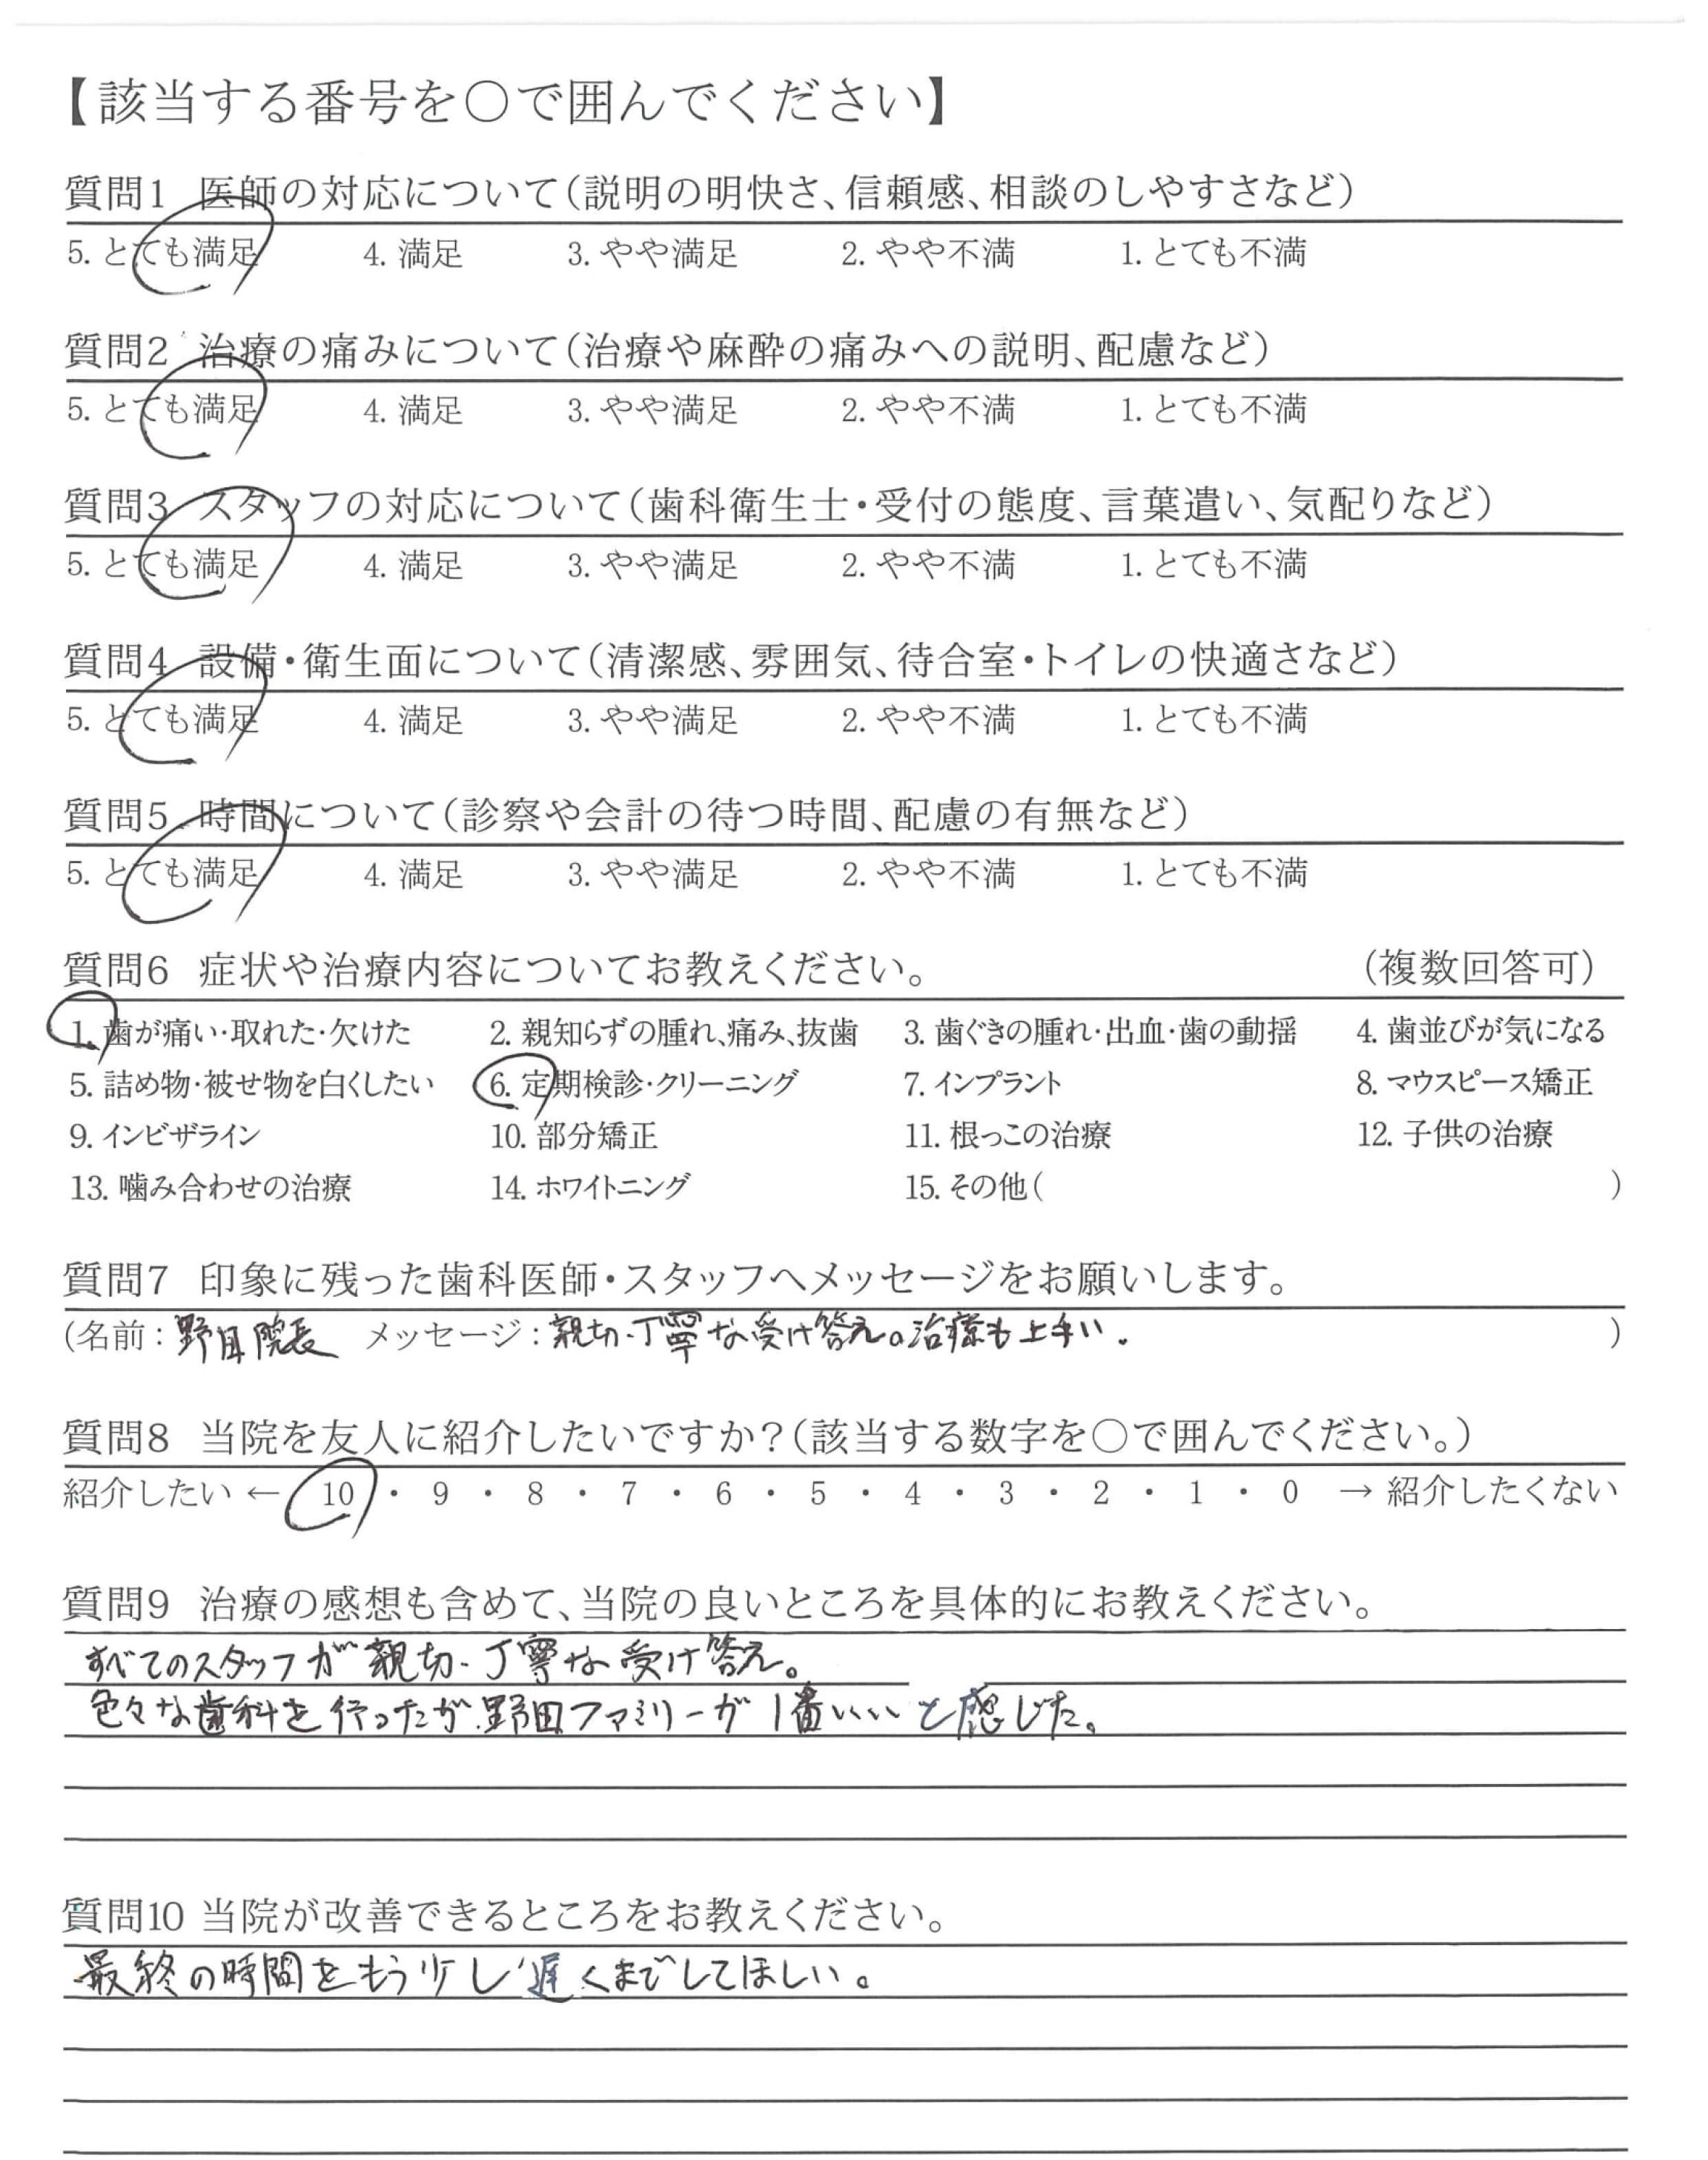 【該当する番号を○で囲んでください】
質問1 医師の対応について(説明の明快さ、信頼感、相談のしやすさなど)
5. とても満足 4. 満足 3. やや満足 2. やや不満 1. とても不満
質問2 治療の痛みについて(治療や麻酔の痛みへの説明、配慮など)
5. とても満足 4. 満足 3. やや満足 2. やや不満 1. とても不満
質問3 スタッフの対応について(歯科衛生士・受付の態度、言葉遣い、気配りなど)
5. とても満足 4. 満足 3. やや満足 2. やや不満 1. とても不満
質問4 設備・衛生面について(清潔感、雰囲気、待合室・トイレの快適さなど)
5. とても満足 4. 満足 3. やや満足 2. やや不満 1. とても不満
質問5 時間について(診察や会計の待つ時間、配慮の有無など)
5. とても満足 4. 満足 3. やや満足 2. やや不満 1. とても不満
質問6 症状や治療内容についてお教えください。 (複数回答可)
1. 歯が痛い・取れた・欠けた 2. 親知らずの腫れ、痛み、抜歯 3. 歯ぐきの腫れ・出血・歯の動揺 4. 歯並びが気になる
5. 詰め物・被せ物を白くしたい 6. 定期検診・クリーニング 7. インプラント 8. マウスピース矯正
9. インビザライン 10. 部分矯正 11. 根っこの治療 12. 子供の治療
13. 噛み合わせの治療 14. ホワイトニング 15. その他( )
質問7 印象に残った歯科医師・スタッフへメッセージをお願いします。
(名前：野田院長 メッセージ：親切・丁寧な受け答え。治療も上手い。 )
質問8 当院を友人に紹介したいですか？(該当する数字を○で囲んでください。)
紹介したい ← 10 ・ 9 ・ 8 ・ 7 ・ 6 ・ 5 ・ 4 ・ 3 ・ 2 ・ 1 ・ 0 → 紹介したくない
質問9 治療の感想も含めて、当院の良いところを具体的にお教えください。
すべてのスタッフが親切・丁寧な受け答え。
色々な歯科を行ったが野田ファミリーが1番いいと感じた。
質問10 当院が改善できるところをお教えください。
最終の時間をもう少し遅くまでしてほしい。